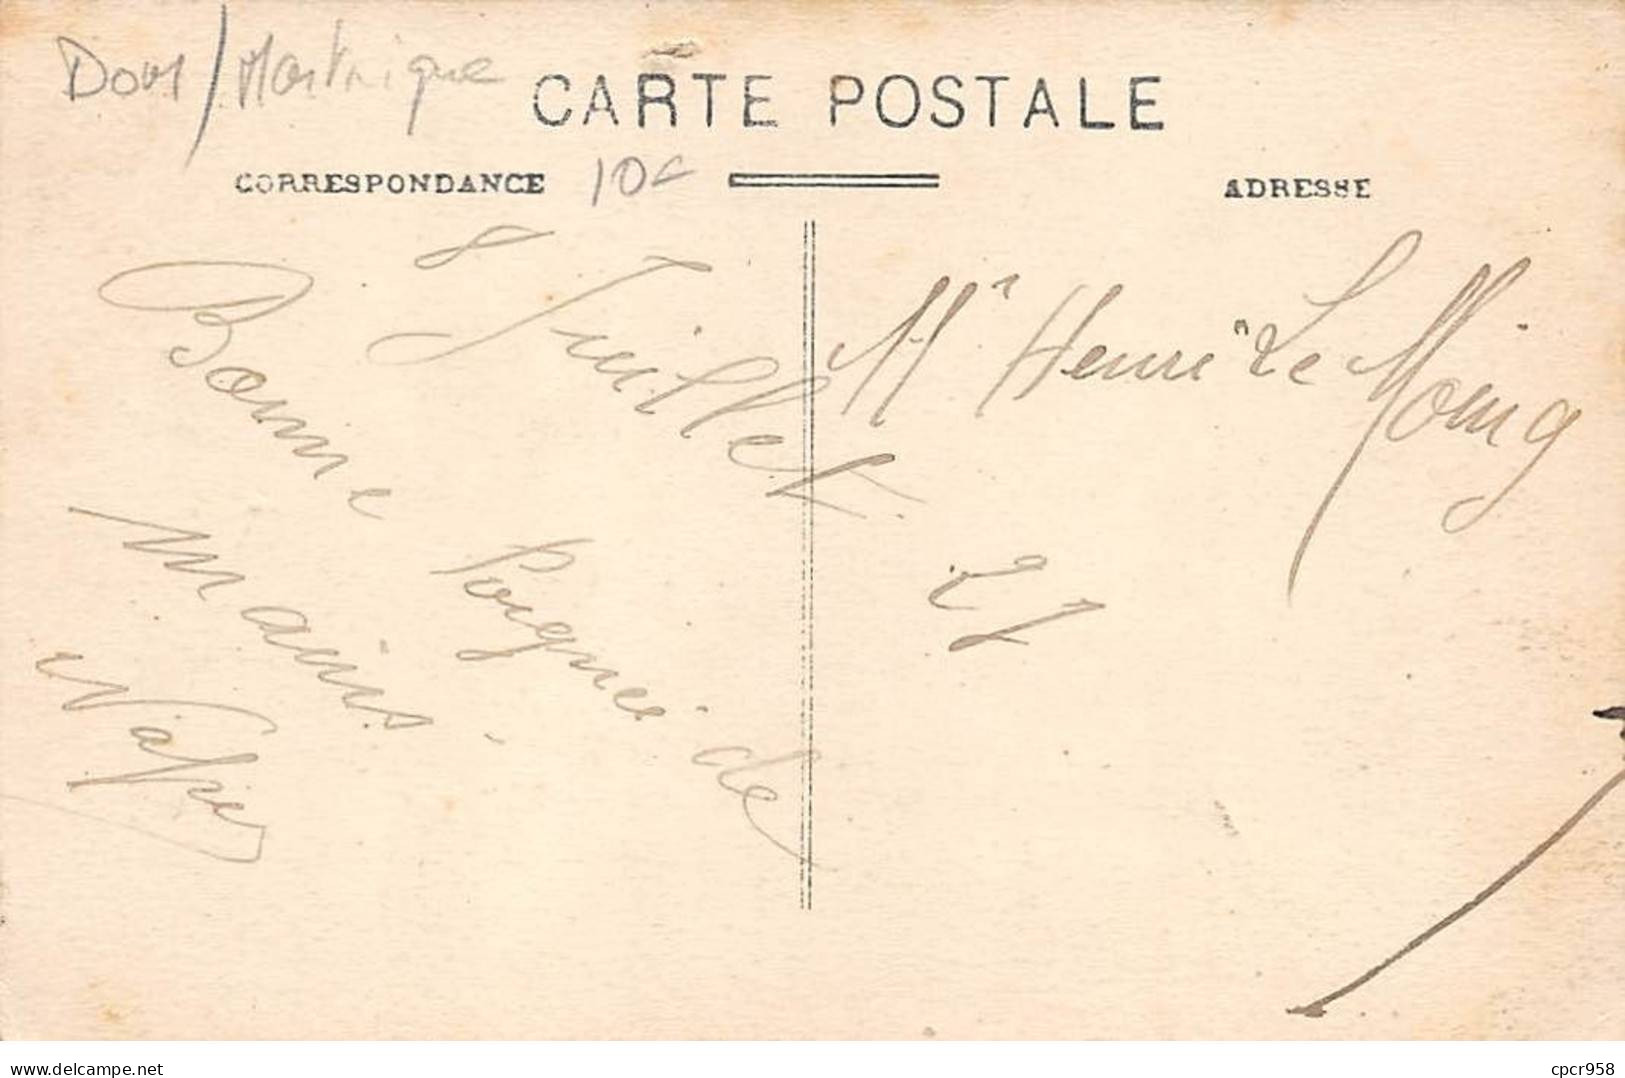 Dom / Martinique
CARTE POSTALE
CORRESPONDANCE
10€
ADRESSE
8 Juillet
Bonne
Poignée de
mains.
Mr Henri Le Moing
delcampe.net
cpcr958